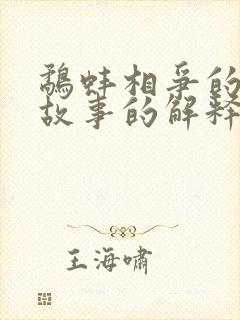 鷸蚌相爭的
故事的解釋
王海嘯